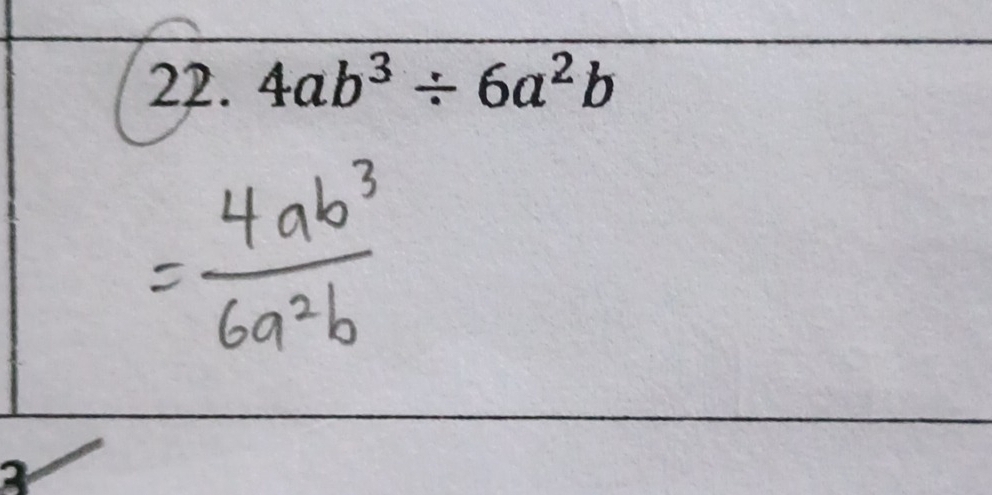 22. 4ab³ ÷ 6a²b
= 4ab³
6a²b
3